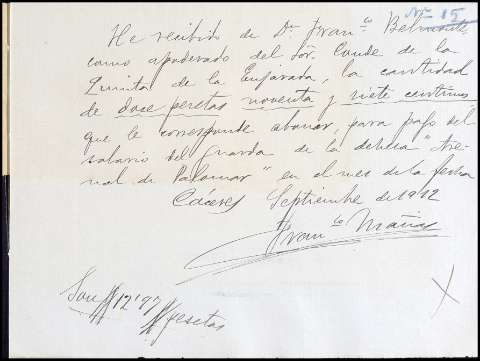 Nº 15
He recibido de Dn. Franco. Belmonte,
como apoderado del Sor. Conde de la
Quinta de la Enjarada, la cantidad
de doce pesetas noventa y siete centimos
que le corresponde abonar, para pago del
salario del guarda de la dehesa "Are-
nal de Palomar" en el mes de la fecha
Cáceres Septiembre de 1912
Franco
Son # 12'97 # pesetas